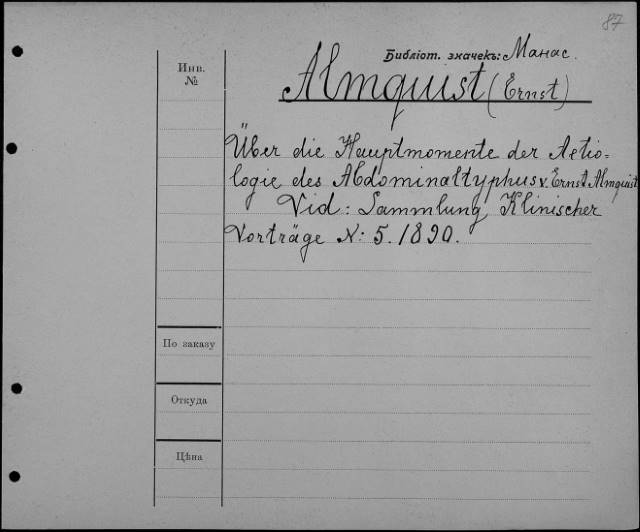 87
Библіот. значекъ: Манас.
Инв.
№
Almquist (Ernst)
Über die Hauptmomente der Aetio=
logie des Abdominaltyphus v. Ernst Almquist
Vid: Sammlung Klinischer
Vorträge N: 5. 1890.
По заказу
Откуда
Цѣна